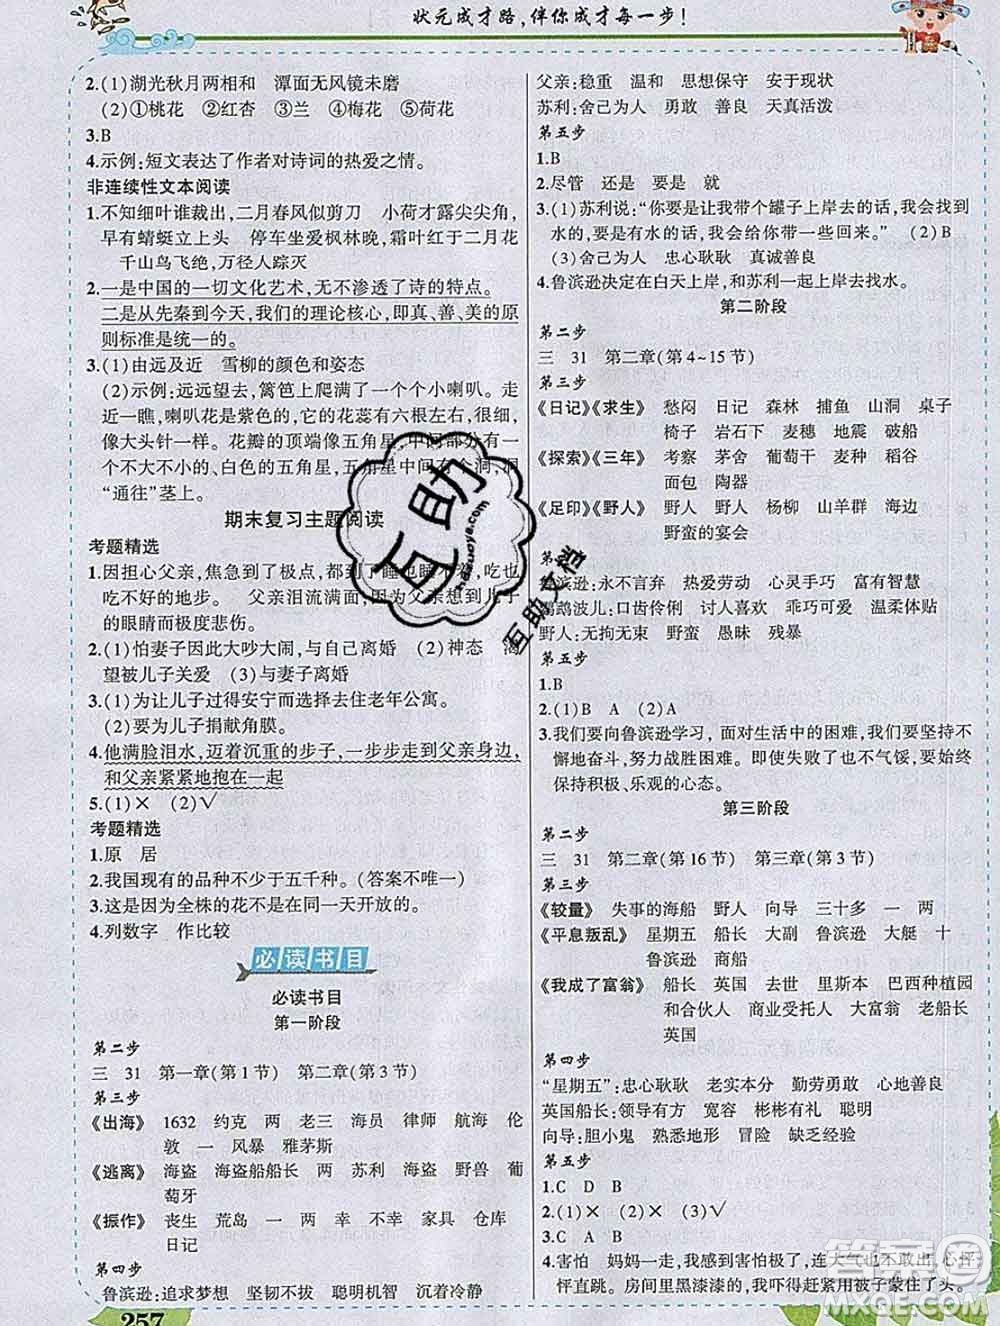 状元成才路,伴你成才每一步!
2.(1)湖光秋月两相和 潭面无风镜未磨
(2)①桃花 ②红杏 ③兰 ④梅花 ⑤荷花
3.B
4.示例:短文表达了作者对诗词的热爱之情。
非连续性文本阅读
1.不知细叶谁裁出,二月春风似剪刀 小荷才露尖尖角,
早有蜻蜓立上头 停车坐爱枫林晚,霜叶红于二月花
千山鸟飞绝,万径人踪灭
2.一是中国的一切文化艺术,无不渗透了诗的特点。
二是从先秦到今天,我们的理论核心,即真、善、美的原
则标准是统一的。
3.(1)由远及近 雪柳的颜色和姿态
(2)示例:远远望去,篱笆上爬满了一个个小喇叭。走
近一瞧,喇叭花是紫色的。它的花蕊有六根左右,细细的,
像大头针一样。花瓣的顶端像五角星,中间部分有一
个不大不小的、白色的五角星,五角星中间有个洞,洞
“通往”茎上。
期末复习主题阅读
考题精选
1.因担心父亲,焦急到了极点,都到了睡也睡不着,吃也
吃不好的地步。 父亲泪流满面,父亲看到儿子
的眼睛而极度悲伤。
2.(1)怕妻子因此大吵大闹,与自己离婚 (2)神态 渴
望被儿子关爱 (3)与妻子离婚
3.(1)为让儿子过得安宁而选择去住老年公寓。
(2)要为儿子捐献角膜。
4.他满脸泪水,迈着沉重的步子,一步步走到父亲身边,
和父亲紧紧地抱在一起
5.(1)× (2)√
考题精选
1.原 居
2.我国现有的品种不少于五千种。(答案不唯一)
3.这是因为全株的花不是在同一天开放的。
4.列数字 作比较
必读书目
必读书目
第一阶段
第二步
三 31 第一章(第1节) 第二章(第3节)
第三步
《出海》 1632 约克 两 老三 海员 律师 航海 伦
敦 一 风暴 雅茅斯
《逃离》 海盗 海盗船船长 两 苏利 海盗 野兽 葡
萄牙
《振作》 丧生 荒岛 一 两 幸 不幸 家具 仓库
日记
第四步
鲁滨逊:追求梦想 坚韧不拔 聪明机智 沉着冷静
257
父亲:稳重 温和 思想保守 安于现状
苏利:舍己为人 勇敢 善良 天真活泼
第五步
1.B
2.尽管 还是 要是 就
3.(1)苏利说:“你要是让我带个罐子上岸去的话,我会找到
水的,要是有水的话,我会给你带一些回来。” (2)B
(3)舍己为人 忠心耿耿 真诚善良
4.鲁滨逊决定在白天上岸,和苏利一起上岸去找水。
第二阶段
第二步
三 31 第二章(第4~15节)
第三步
《日记》《求生》 愁闷 日记 森林 捕鱼 山洞 桌子
椅子 岩石下 麦穗 地震 破船
《探索》《三年》 考察 茅舍 葡萄干 麦种 稻谷
面包 陶器
《足印》《野人》 野人 野人 杨柳 山羊群 海边
野蛮的宴会
第四步
鲁滨逊:永不言弃 热爱劳动 心灵手巧 富有智慧
鹦鹉波儿:口齿伶俐 讨人喜欢 乖巧可爱 温柔体贴
野人:无拘无束 野蛮 愚昧 残暴
第五步
1.B
2.(1)B A (2)A
3.我们要向鲁滨逊学习,面对生活中的困难,我们要坚持不
懈地奋斗,努力战胜困难。即使失败了也不气馁,要始终
保持积极、乐观的心态。
第三阶段
第二步
三 31 第二章(第16节) 第三章(第3节)
第三步
《较量》 失事的海船 野人 向导 三十多 一 两
《平息叛乱》 星期五 船长 大副 鲁滨逊 大艇 十
鲁滨逊 商船
《我成了富翁》 船长 英国 去世 里斯本 巴西种植园
和合伙人 商业受托人 大富翁 老船长
英国
第四步
“星期五”:忠心耿耿 老实本分 勤劳勇敢 心地善良
英国船长:领导有方 宽容 彬彬有礼 聪明
向导:胆小鬼 熟悉地形 冒险 缺乏经验
第五步
1.C D B
2.(1)× (2)× (3)√
3.C A B
4.害怕 妈妈一走,我感到害怕极了,连大气也不敢出,心怦
怦直跳。房间里黑漆漆的,我吓得赶紧用被子蒙住了头。
互助
hdzuoye.com
互助文档
答案圈